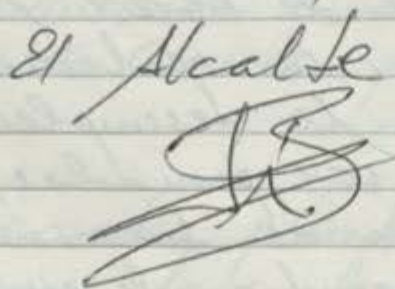 El Alcalde